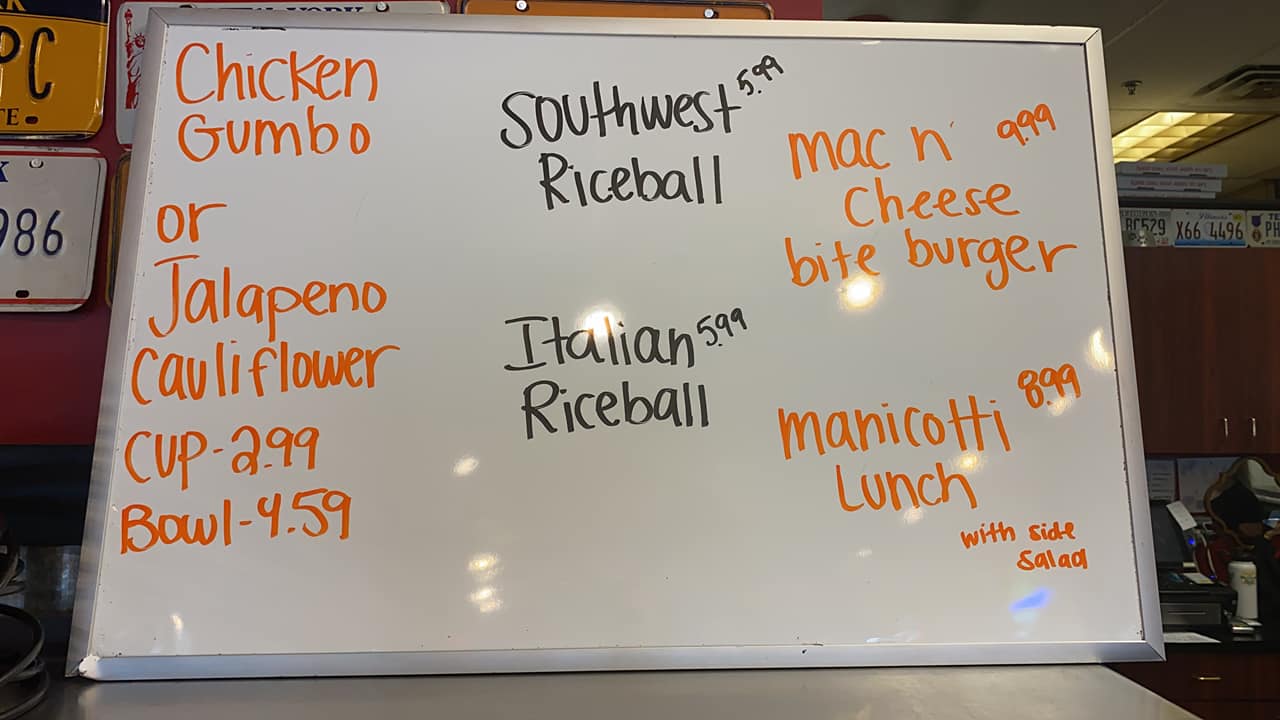 Chicken
Gumbo
or
Jalapeno
Cauliflower
CUP-2.99
Bowl-4.59
Southwest 5.99
Riceball
Italian 5.99
Riceball
mac n' 9.99
Cheese
bite burger
manicotti 8.99
Lunch
with side
Salad
PC
986
X66 4496